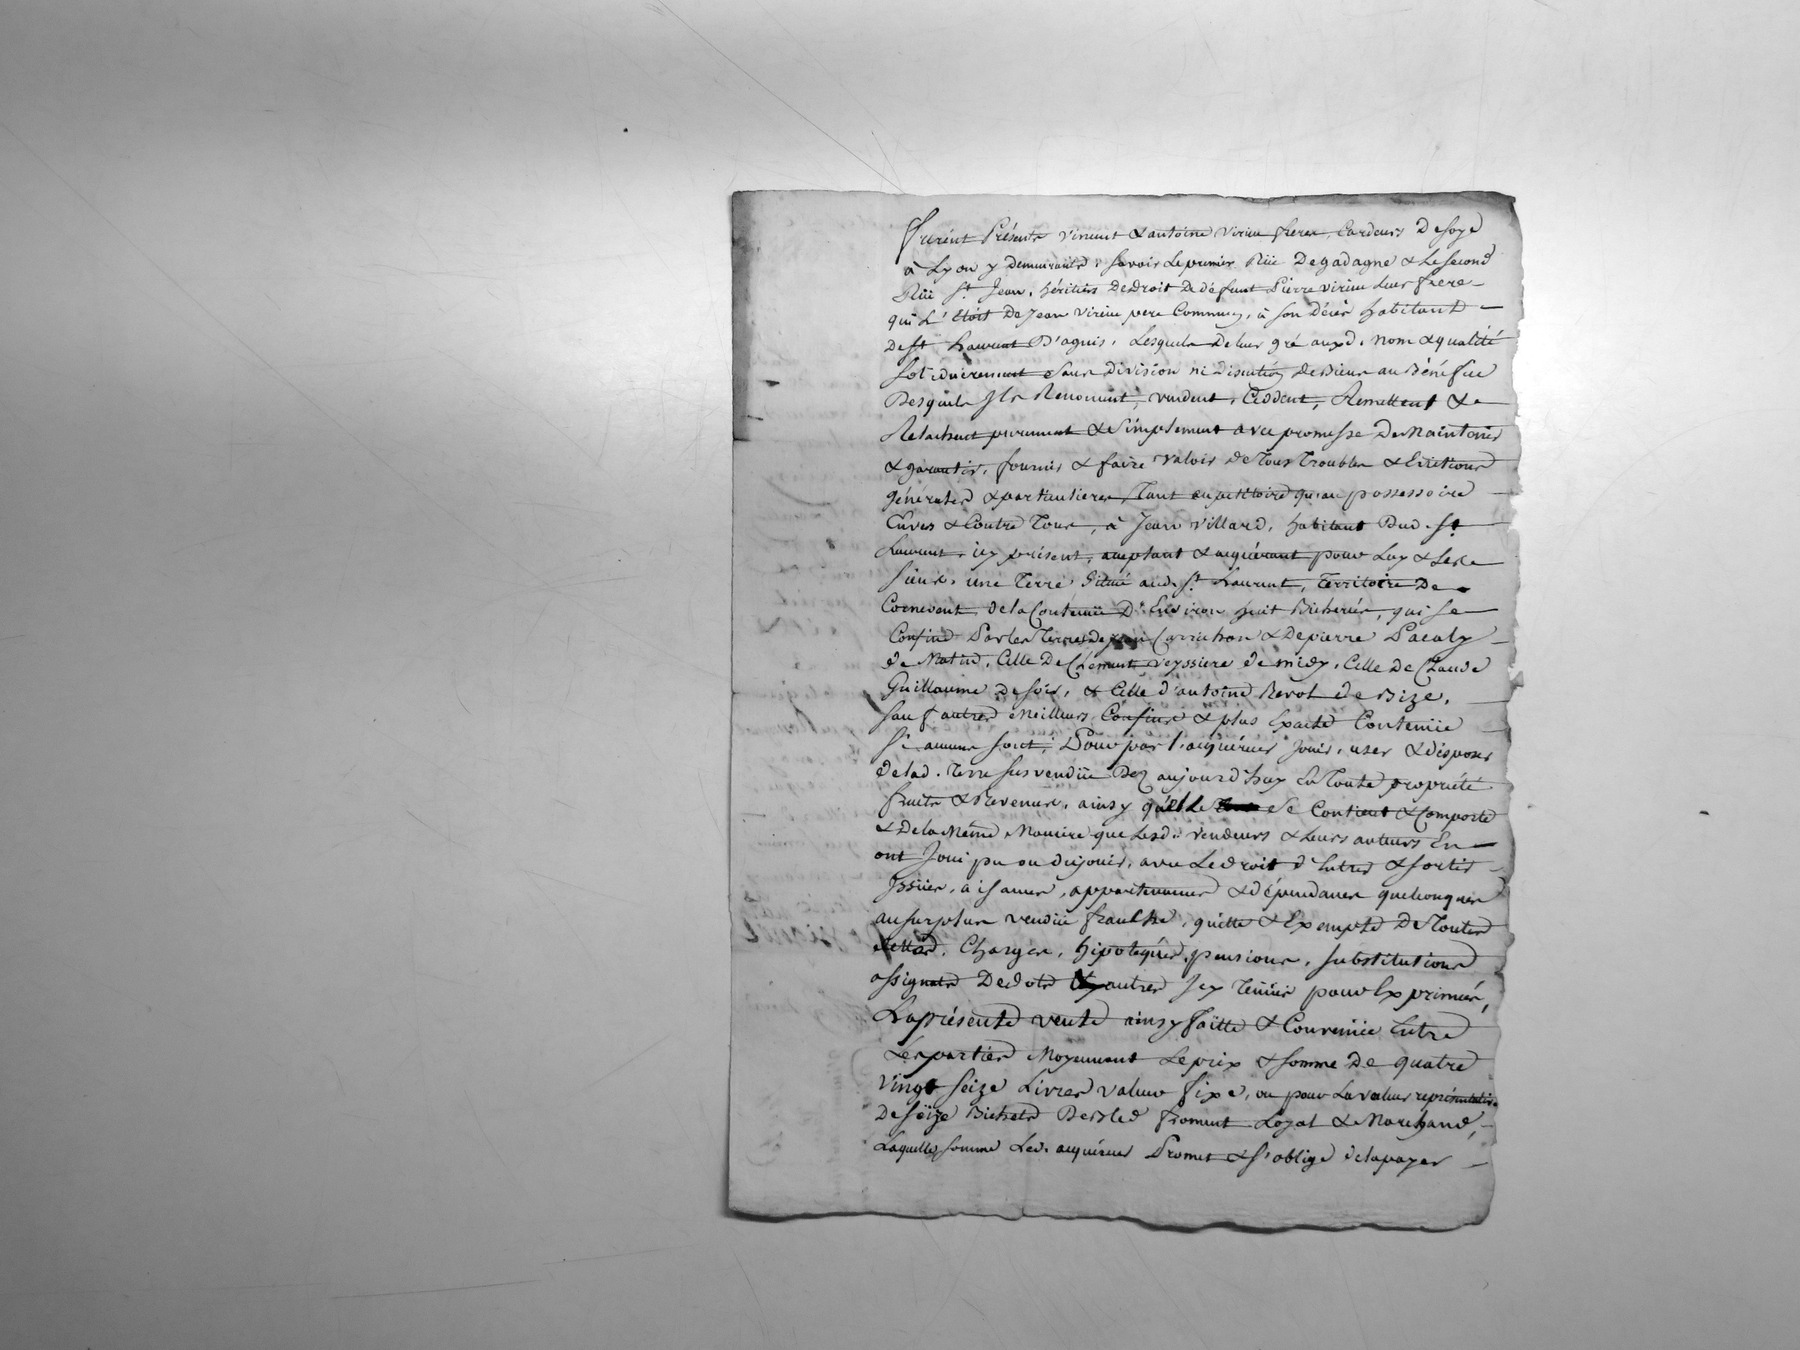 furent Présents vincent & antoine virieu freres, Cardeurs De soye
à Lyon y demeurants, savoir Le premier Rüe De gadagne & Le second
Rüe St. Jean, héritiers De Droit De défunt Pierre virieu Leur frere
qui L'Etoit De Jean virieu pere Commun, à son décès habitant
De St Laurent D'agnis, Lesquels De leur gré auxd. nom & qualité
solidairement sans division ni Discution de Biens au Bénéfice
Desquels Ils Renoncent, vendent, Cèddent, Remettent &
Relachent purement & simplement avec promesse De Maintenir
& garantir, fournir & faire valoir de Tous Troubles & Evictions
générales & particulieres Tant au petitoire qu'au possessoire
Envers & Contre Tous, à Jean villard, habitant Dud. St
Laurent, icy présent, acceptant & acquérant pour Luy & Les
siens, une Terre située aud. St. Laurent, Territoire De
Cornevent, de la Contenüe D'Environ huit Bicherées, qui se
Confine Par les Terres de Jean Carrichon & De pierre Pacaly
de Matin, Celle De Clément veyssiere de midy, Celle De Claude
Guillaume de soir, & Celle d'antoine Revol de Bize,
sauf autres Meilleurs Confins & plus Exacte Contenüe
si aucuns sont; Pour par l'acquéreur jouir, user & disposer
de lad. Terre sus vendüe Dez aujourd'huy En Toute propriété
fruits & Revenus, ainsy qu'elle se Contient & Comporte
& De la Même Maniere que Lesd. vendeurs & Leurs auteurs En
ont Joui pu ou dû jouir, avec Le droit d'Entrer & sortir
Issües, aisances, appartenances & dépendances quelconques
au surplus vendüe franche, quitte & Exempte De Toutes
dettes, Charges, hipotéques, pensions, substitutions
assignats De dots & autres Icy Tenües pour Exprimées,
La présente vente ainsy faitte & Convenüe Entre
Les parties Moyennant Le prix & somme De quatre
vingt seize Livres valeur fixe, ou pour La valeur représentative
De seize Bichets De Bled froment Loyal & Marchand,
Laquelle somme Led. acquéreur Promet & s'oblige de la payer